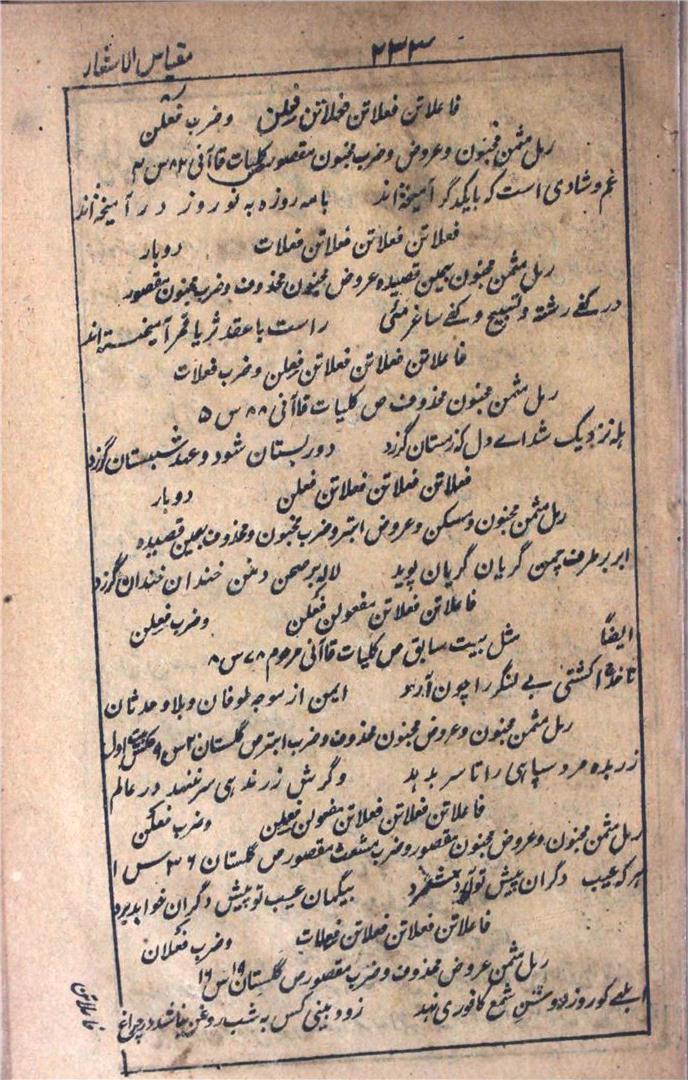 مقیاس الاشعار ۲۳۳
فاعلاتن فعلاتن فعلاتن فعلن وضرب فعلن
رمل مثمن مخبون وعروض وضرب مخبون مقصور ص کلیات قاآنی ۸۲ س ۳
غم و شادی است که با یکدگر آمیخته‌اند با مه روزه به نوروز در آمیخته‌اند
فعلاتن فعلاتن فعلاتن فعلات دوبار
رمل مثمن مخبون بهمین قصیده عروض مخبون محذوف وضرب مخبون مقصور
در کفے رشته و تسبیح و کفے ساغر مے راست با عقد ثریا قمر آمیخته‌اند
فاعلاتن فعلاتن فعلاتن فعلن وضرب فعلات
رمل مثمن مخبون محذوف ص کلیات قاآنی ۸۸ س ۵
هله نزدیک شد اے دل که زمستان گزرد دور بستان شود و عهد شبستان گزرد
فعلاتن فعلاتن فعلاتن فعلن دوبار
رمل مثمن مخبون ومسکن وعروض ابتر وضرب مخبون ومحذوف بهمین قصیده
ابر بر طرف چمن گریان گریان پوید لاله بر صحن دمن خندان خندان گزرد
فاعلاتن فعلاتن مفعولن فعلن وضرب فعلن
ایضاً مثل بیت سابق ص کلیات قاآنی مرحوم ۷۸ س ۸
ناخدا کشتی بے لنگر را چون آرد ایمن از موجه طوفان و بلا و حدثان
رمل مثمن مخبون وعروض مخبون محذوف وضرب ابتر ص گلستان ۲ س ۹ بیت اول
زر بده مرد سپاهی را تا سر بدهد وگرش زر ندهی سر نهد در عالم
فاعلاتن فعلاتن فعلاتن مفعولن فعلن وضرب فعلن
رمل مثمن مخبون وعروض مخبون مقصور وضرب مشعث مقصور ص گلستان ۳۶ س ۱
هر که عیب دگران پیش تو آورد و شمرد بیگمان عیب تو پیش دگران خواهد برد
فاعلاتن فعلاتن فعلاتن فعلات وضرب فعلان
رمل مثمن عروض محذوف وضرب مقصور ص گلستان ۱۹ س ۱۶
ابلهے کو روز روشن شمع کافوری نهد زود بینی کس به شب روغن نباشد در چراغ
فاعلاتن